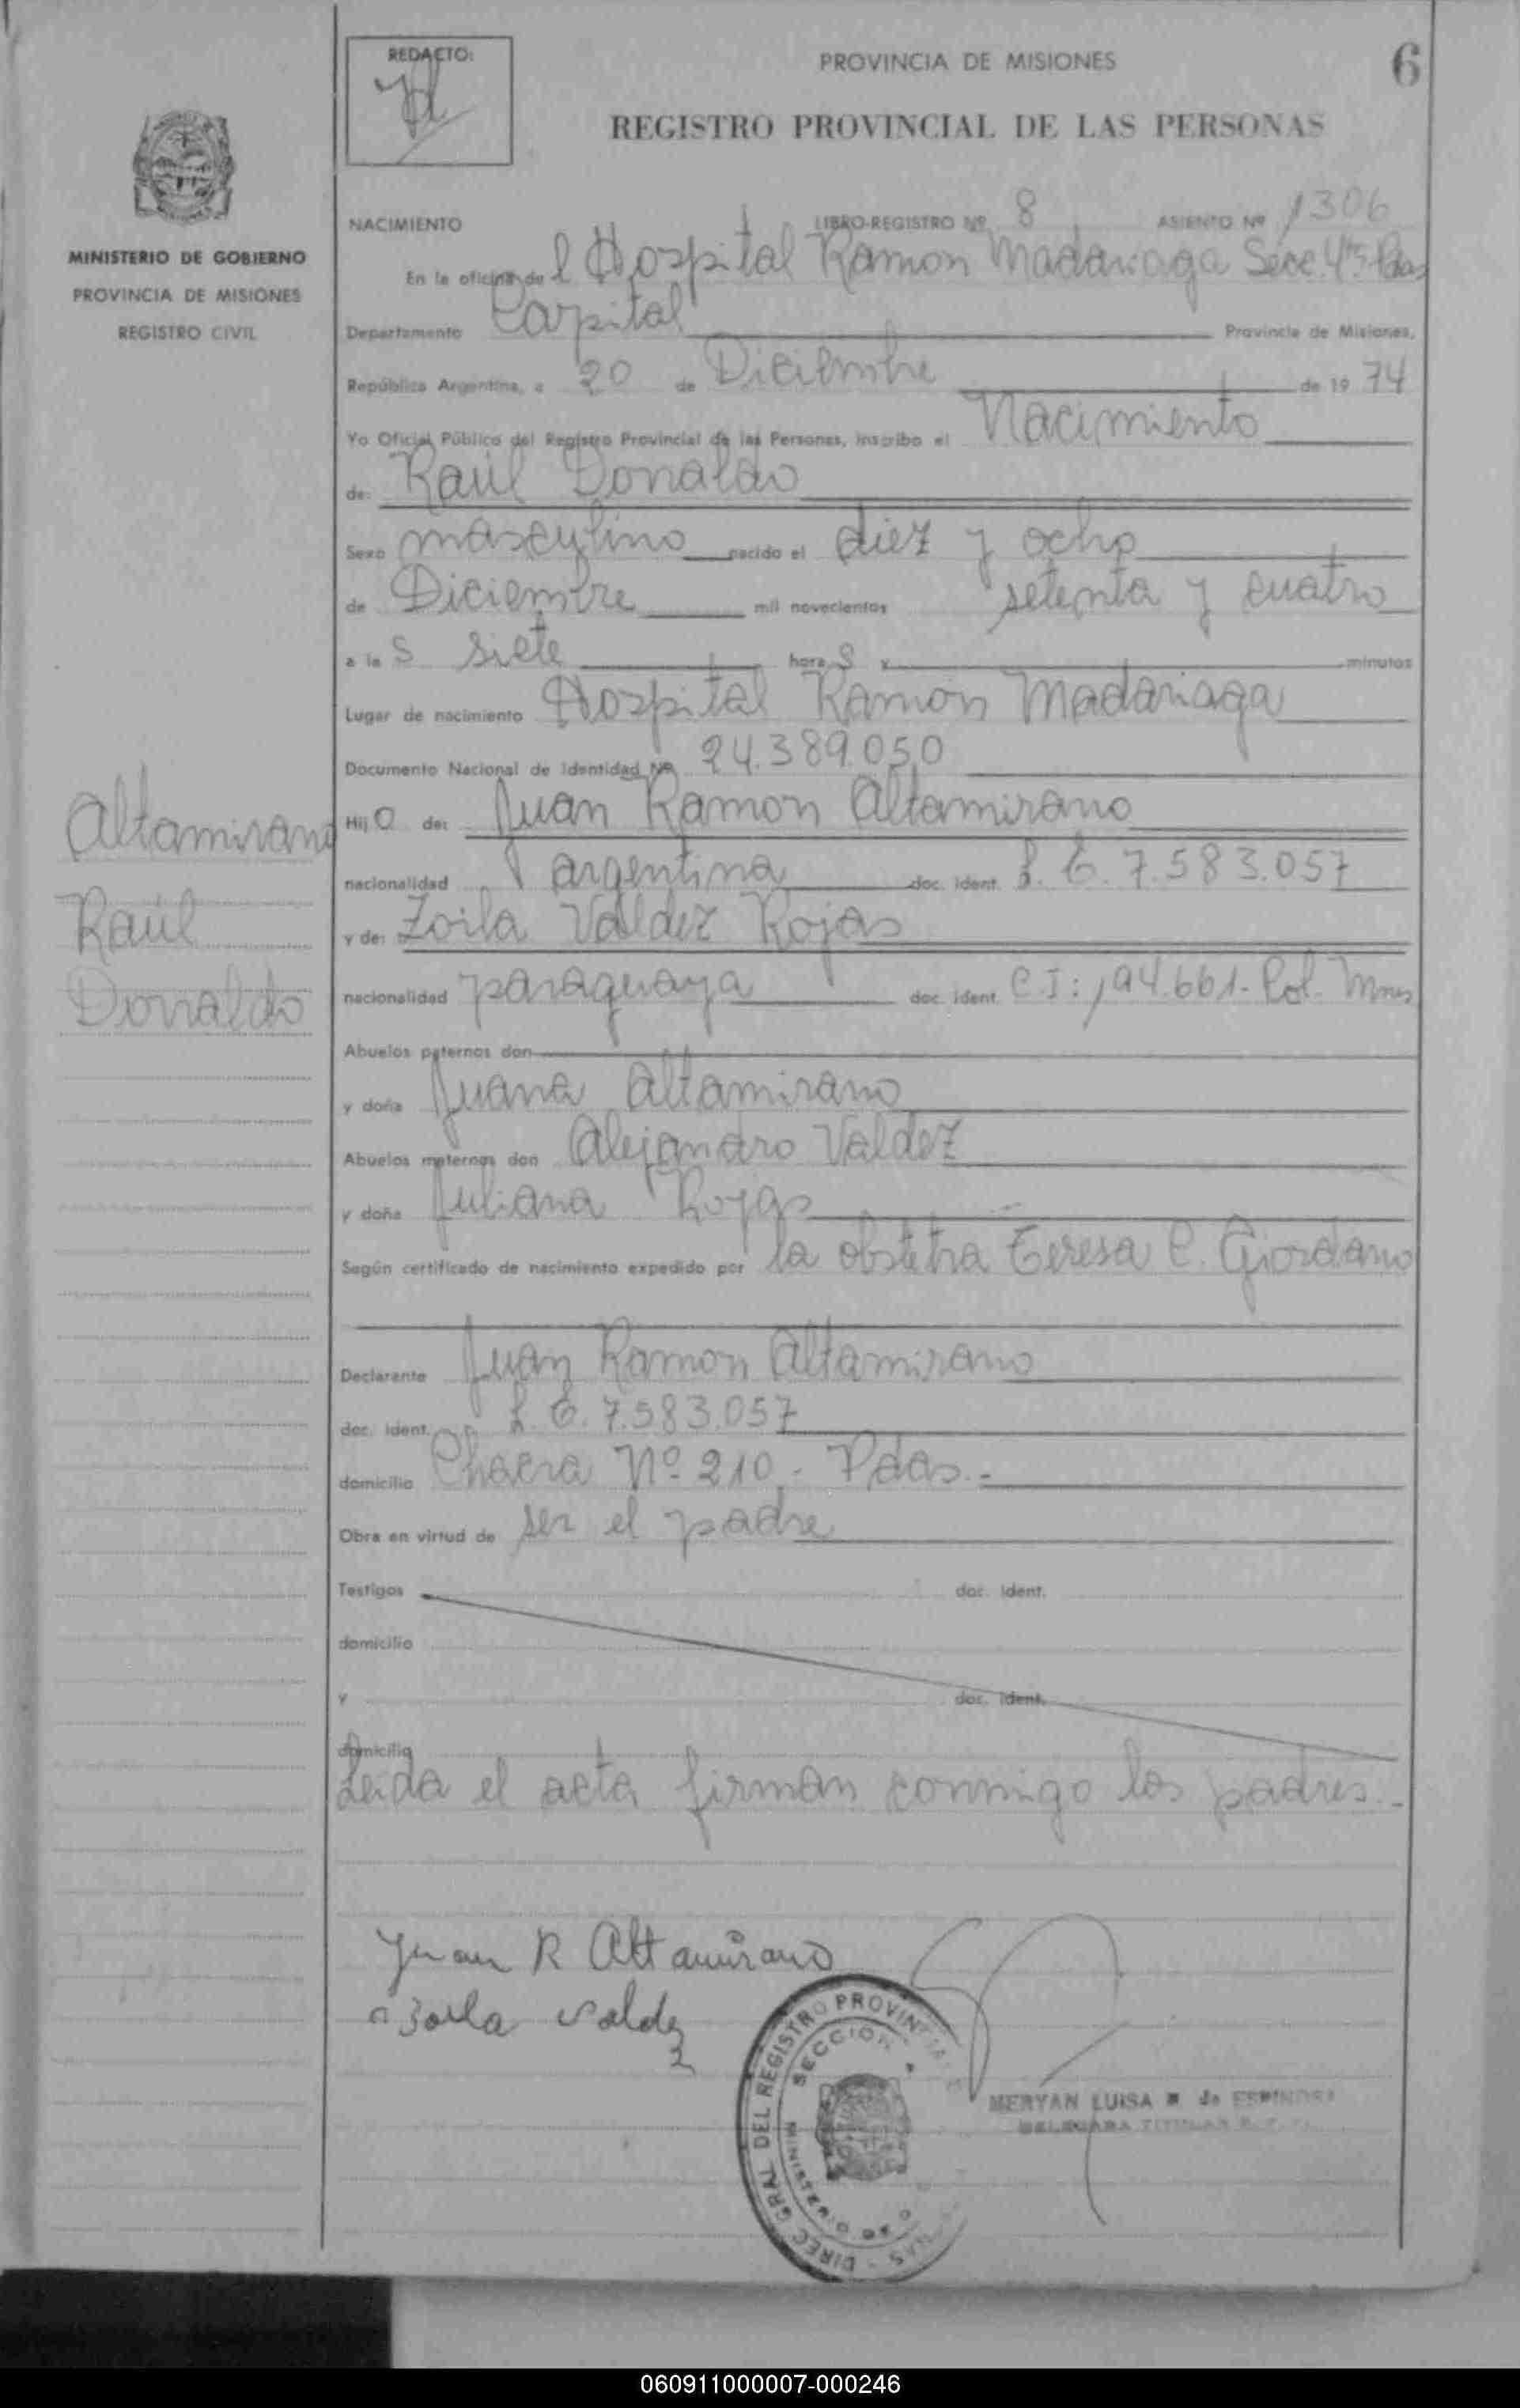 REDACTO:
PROVINCIA DE MISIONES
6
REGISTRO PROVINCIAL DE LAS PERSONAS
MINISTERIO DE GOBIERNO
PROVINCIA DE MISIONES
REGISTRO CIVIL
NACIMIENTO LIBRO-REGISTRO Nº 8 ASIENTO Nº 1306
En la oficina de l Hospital Ramon Madariaga Secc. 4ta Pdas
Departamento Capital Provincia de Misiones,
República Argentina, a 20 de Diciembre de 19 74
Yo Oficial Público del Registro Provincial de las Personas, inscribo el Nacimiento
de: Raúl Donaldo
Sexo masculino nacido el diez y ocho
de Diciembre mil novecientos setenta y cuatro
a la s siete hora s y minutos
Lugar de nacimiento Hospital Ramón Madariaga
Documento Nacional de Identidad Nº 24.389.050
Hij o de: Juan Ramon Altamirano
nacionalidad argentina doc. ident. L. E. 7.583.057
y de: Zoila Valdez Rojas
nacionalidad paraguaya doc. ident. C I: 194.661. Pol. Mnes
Abuelos paternos don
y doña Juana Altamirano
Abuelos maternos don Alejandro Valdez
y doña Juliana Rojas
Según certificado de nacimiento expedido por la obstetra Teresa C. Giordano
Declarante Juan Ramon Altamirano
doc. ident. L. E. 7.583.057
domicilio Chacra Nº 210. Pdas.-
Obra en virtud de ser el padre
Testigos doc. ident.
domicilio
y doc. ident.
domicilio
Leida el acta firman conmigo los padres.-
Altamirano
Raúl
Donaldo
Juan R Altamirano
Zoila Valdez
DIREC. GRAL DEL REGISTRO PROVINCIAL
SECCION
MINISTERIO DE
MERYAN LUISA de ESPINOSA
DELEGADA TITULAR
060911000007-000246